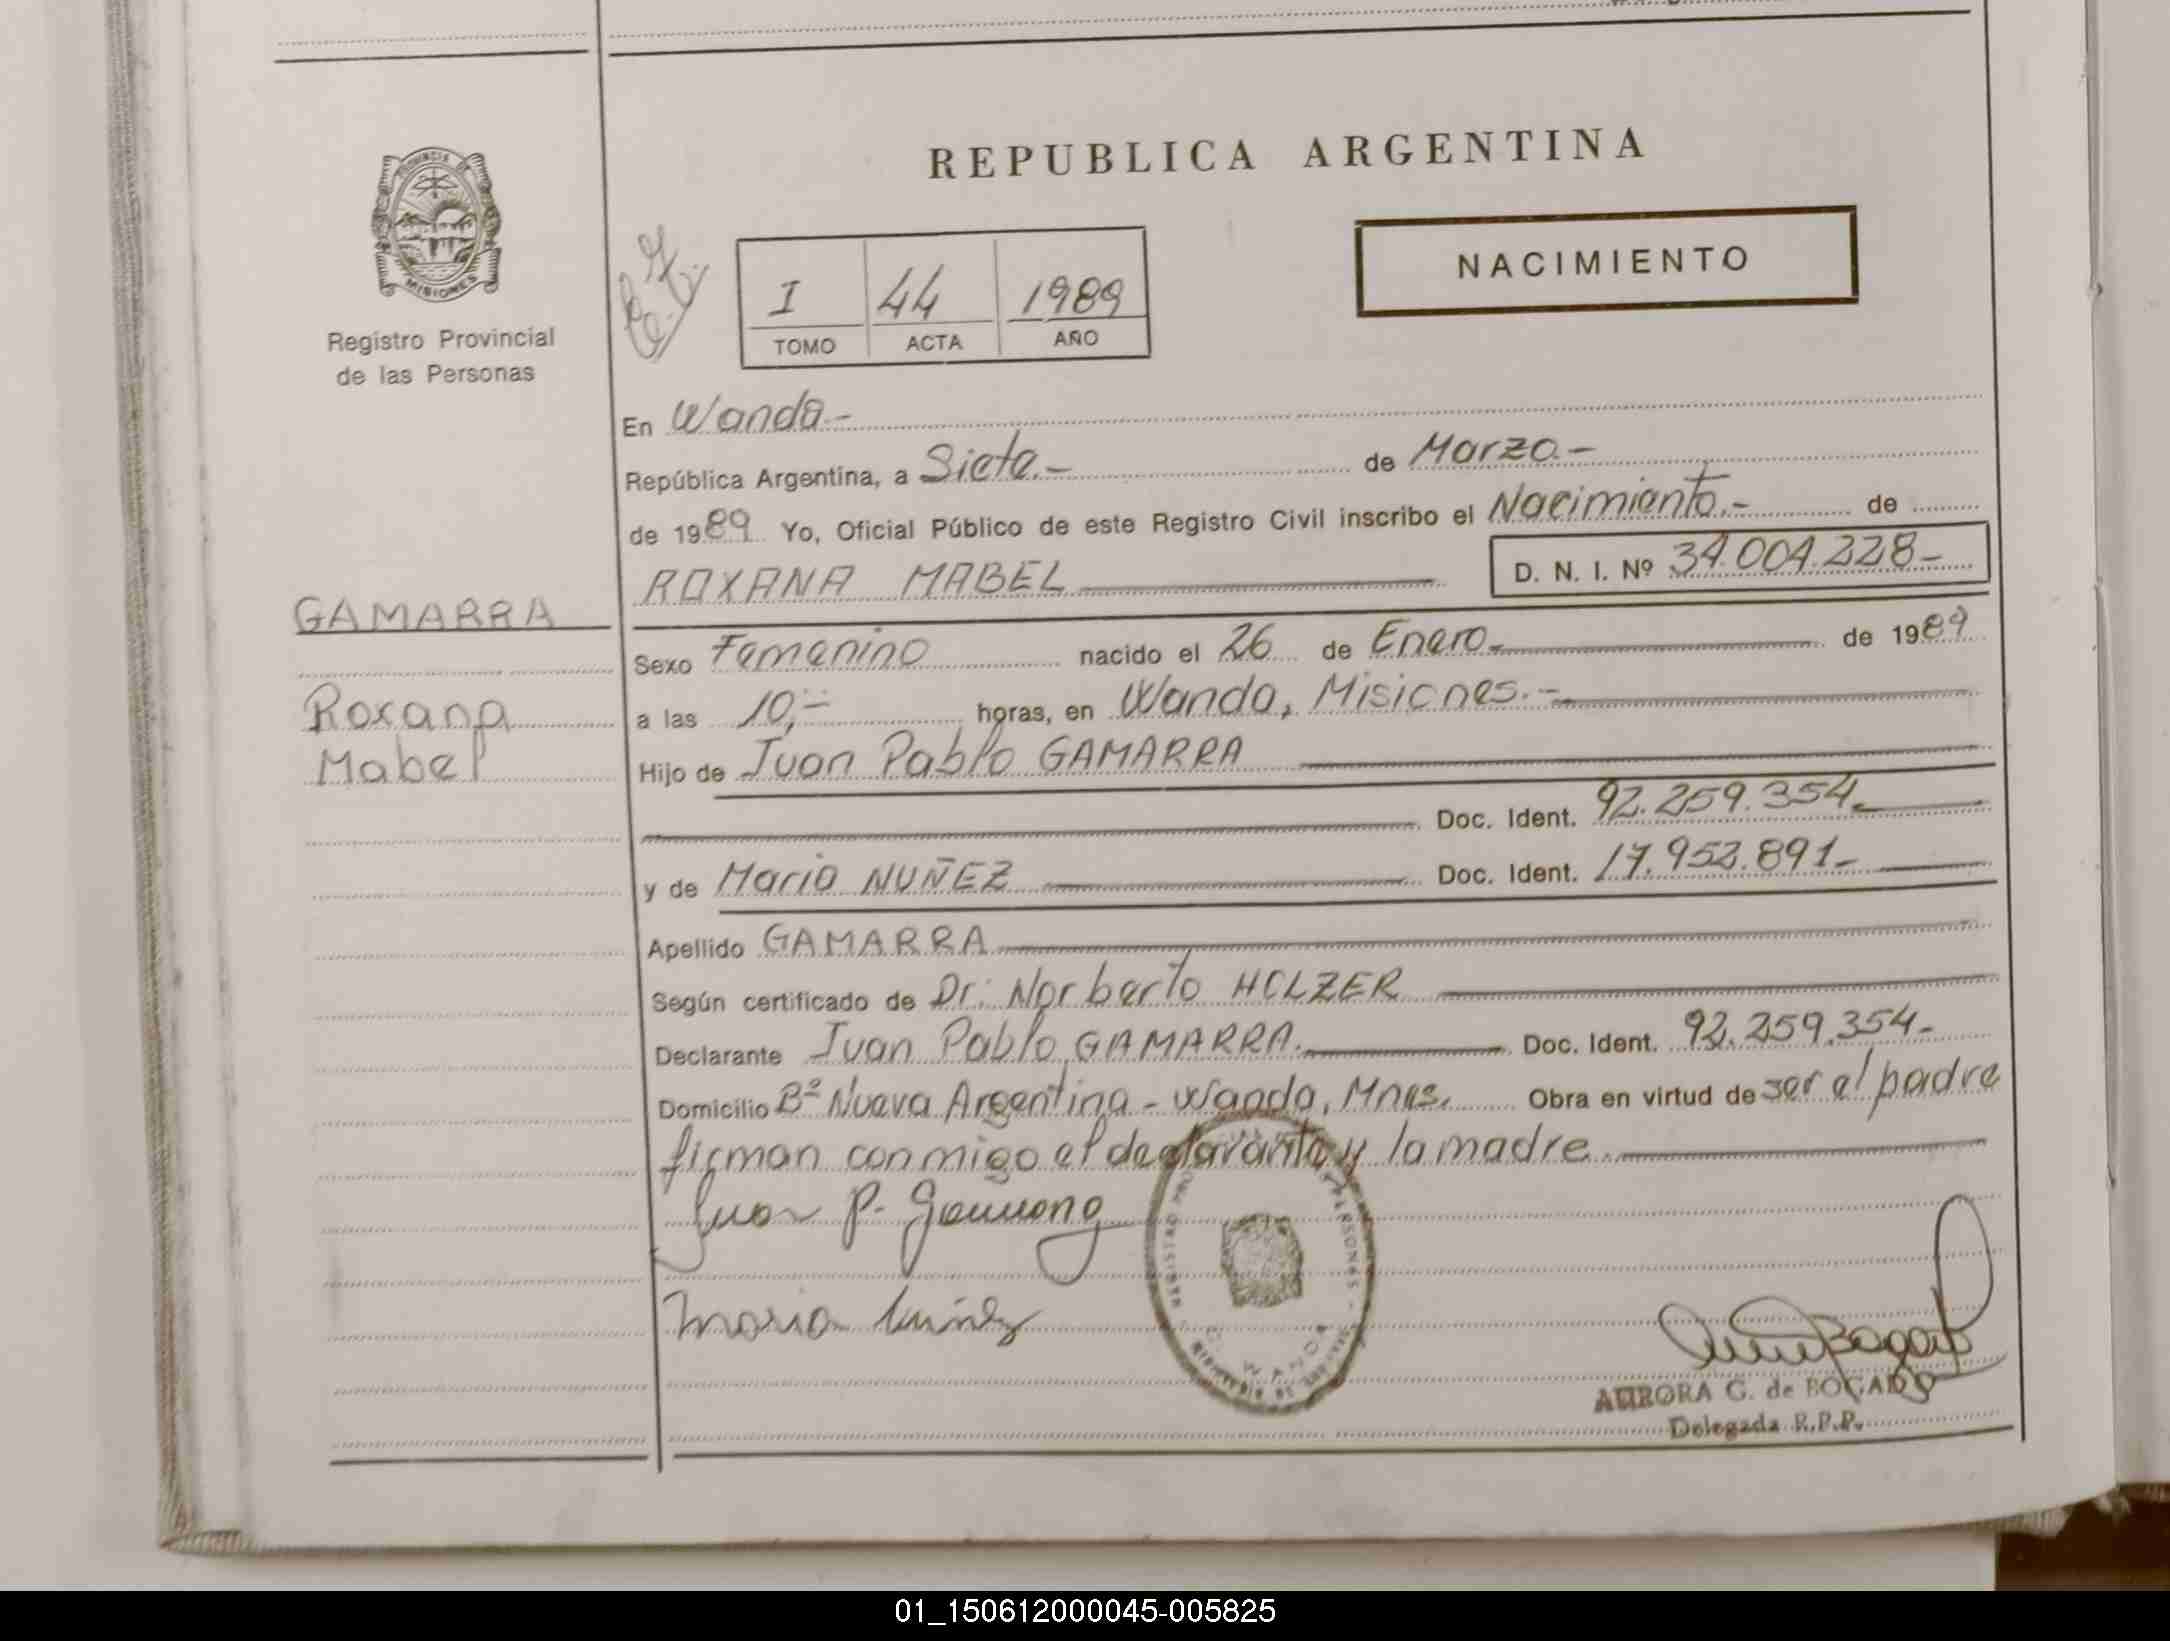 REPUBLICA ARGENTINA
PROVINCIA DE
MISIONES
Registro Provincial
de las Personas
NACIMIENTO
I 44 1989
TOMO ACTA AÑO
En Wanda.-
República Argentina, a Siete.- de Marzo.-
de 1989 Yo, Oficial Público de este Registro Civil inscribo el Nacimiento.- de
ROXANA MABEL D. N. I. Nº 34.004.228-
GAMARRA
Roxana
Mabel
Sexo Femenino nacido el 26 de Enero.- de 1989
a las 10,- horas, en Wanda, Misiones.-
Hijo de Juan Pablo GAMARRA
Doc. Ident. 92.259.354.-
y de Maria NUÑEZ Doc. Ident. 17.952.891-
Apellido GAMARRA
Según certificado de Dr. Norberto HOLZER
Declarante Juan Pablo GAMARRA. Doc. Ident. 92.259.354-
Domicilio Bº Nueva Argentina - Wanda, Mnes. Obra en virtud de ser el padre
firman conmigo el declarante y la madre.
Juan P. Gamarra
Maria Nuñez
WANDA
AURORA G. de BOGADO
Delegada R.P.P.
01_150612000045-005825